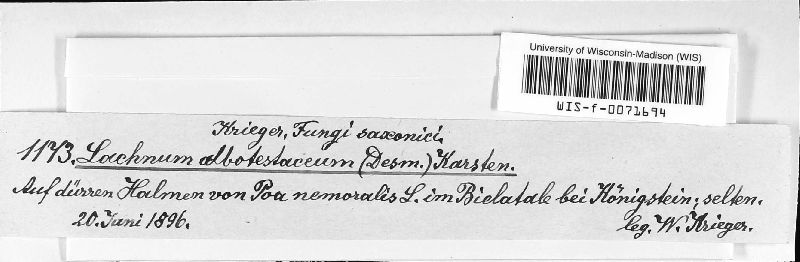 University of Wisconsin-Madison (WIS)
WIS-f-0071694
Krieger, Fungi saxonici.
1173. Lachnum albotestaceum (Desm.) Karsten.
Auf dürren Halmen von Poa nemoralis L. im Bielatale bei Königstein; selten.
20. Juni 1896.
leg. W. Krieger.